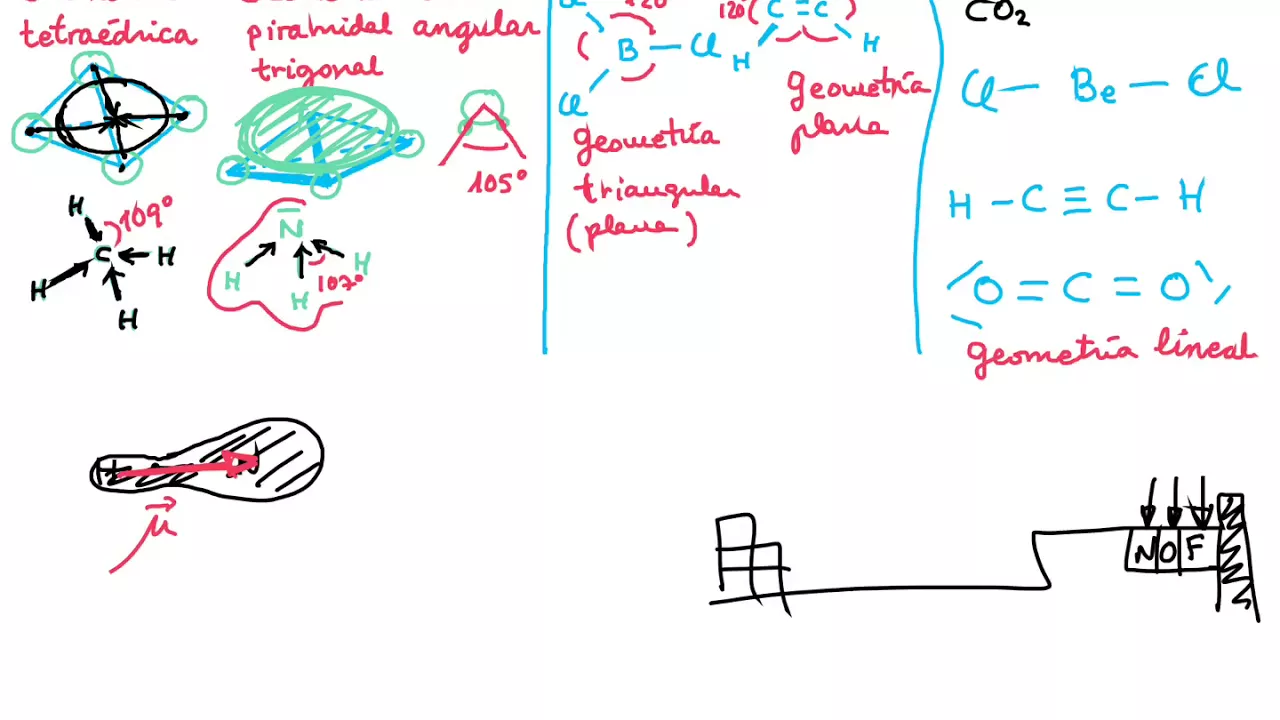 tetraédrica
piramidal angular
trigonal
105°
H
109°
C
H
H
H
N
H
H
H
107°
120
B — Cl
Cl
geometría
triangular
(plana)
120° C = C
H
H
geometría
plana
CO₂
Cl — Be — Cl
H — C ≡ C — H
O = C = O
geometría lineal
H
μ
N O F